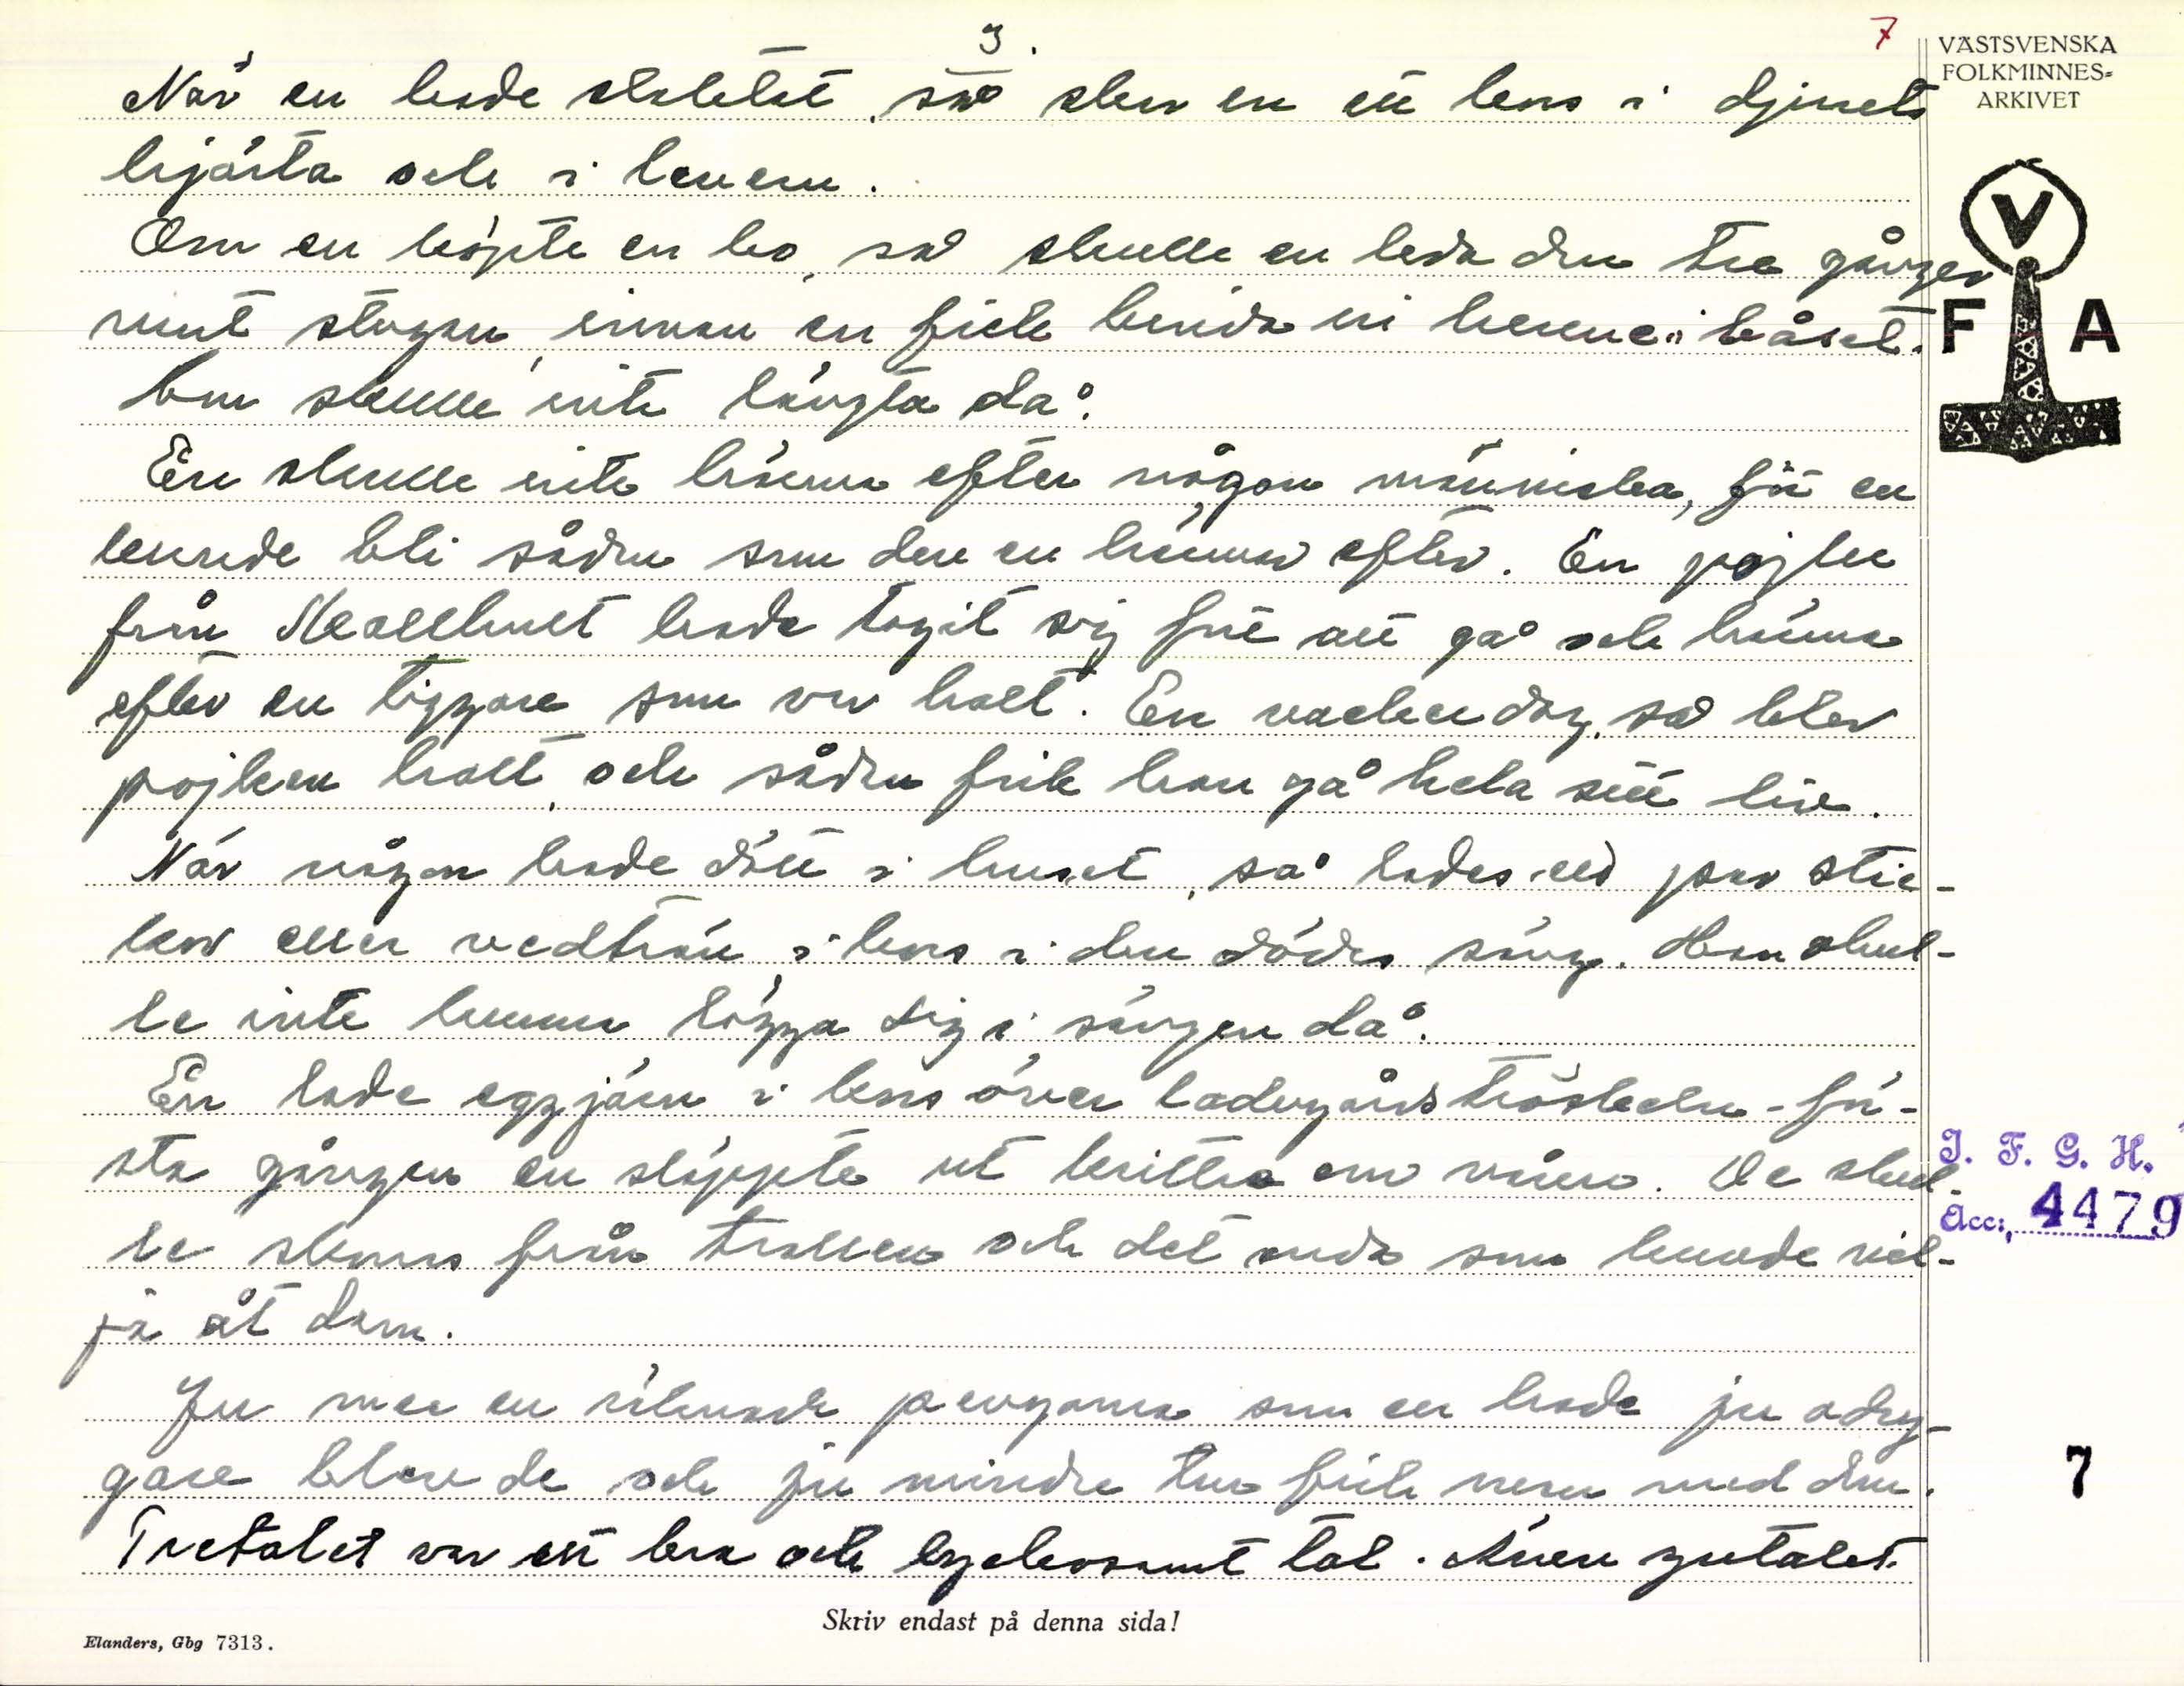 3.
7
VÄSTSVENSKA
FOLKMINNES=
ARKIVET
När en hade slaktat, så skar en ett kors i djurets
hjärta och i levern.
Om en köpte en ko, så skulle en leda den tre gånger
runt stugan, innan en fick binda in henne i båset.
Hon skulle inte längta då.
En skulle inte härma efter någon människa, för en
kunde bli sådan som den en härmar efter. En pojke
från hade tagit sig för att gå och härma
efter en tiggare som var halt. En vacker dag, så blev
pojken halt, och sådan fick han gå hela sitt liv.
När någon hade dött i huset, så lades ett par stic-
kor eller vedträn i kors i den dödes säng. Han skul-
le inte kunna lägga sig i sängen då.
En lade eggjärn i kors över ladugårdströskeln för-
sta gången en släppte ut kritter om våren. De skul-
le skonas från trollen och det onda som kunde vil-
ja åt dem.
Ju mer en räknade pengarna som en hade ju ödry-
gare blev de och ju mindre tur fick men med dem.
Tretalet var ett bra och lyckosamt tal. Även sjutalet.
V
F A
I. F. G. H.
Acc: 4479
7
Skriv endast på denna sida!
Elanders, Gbg 7313.